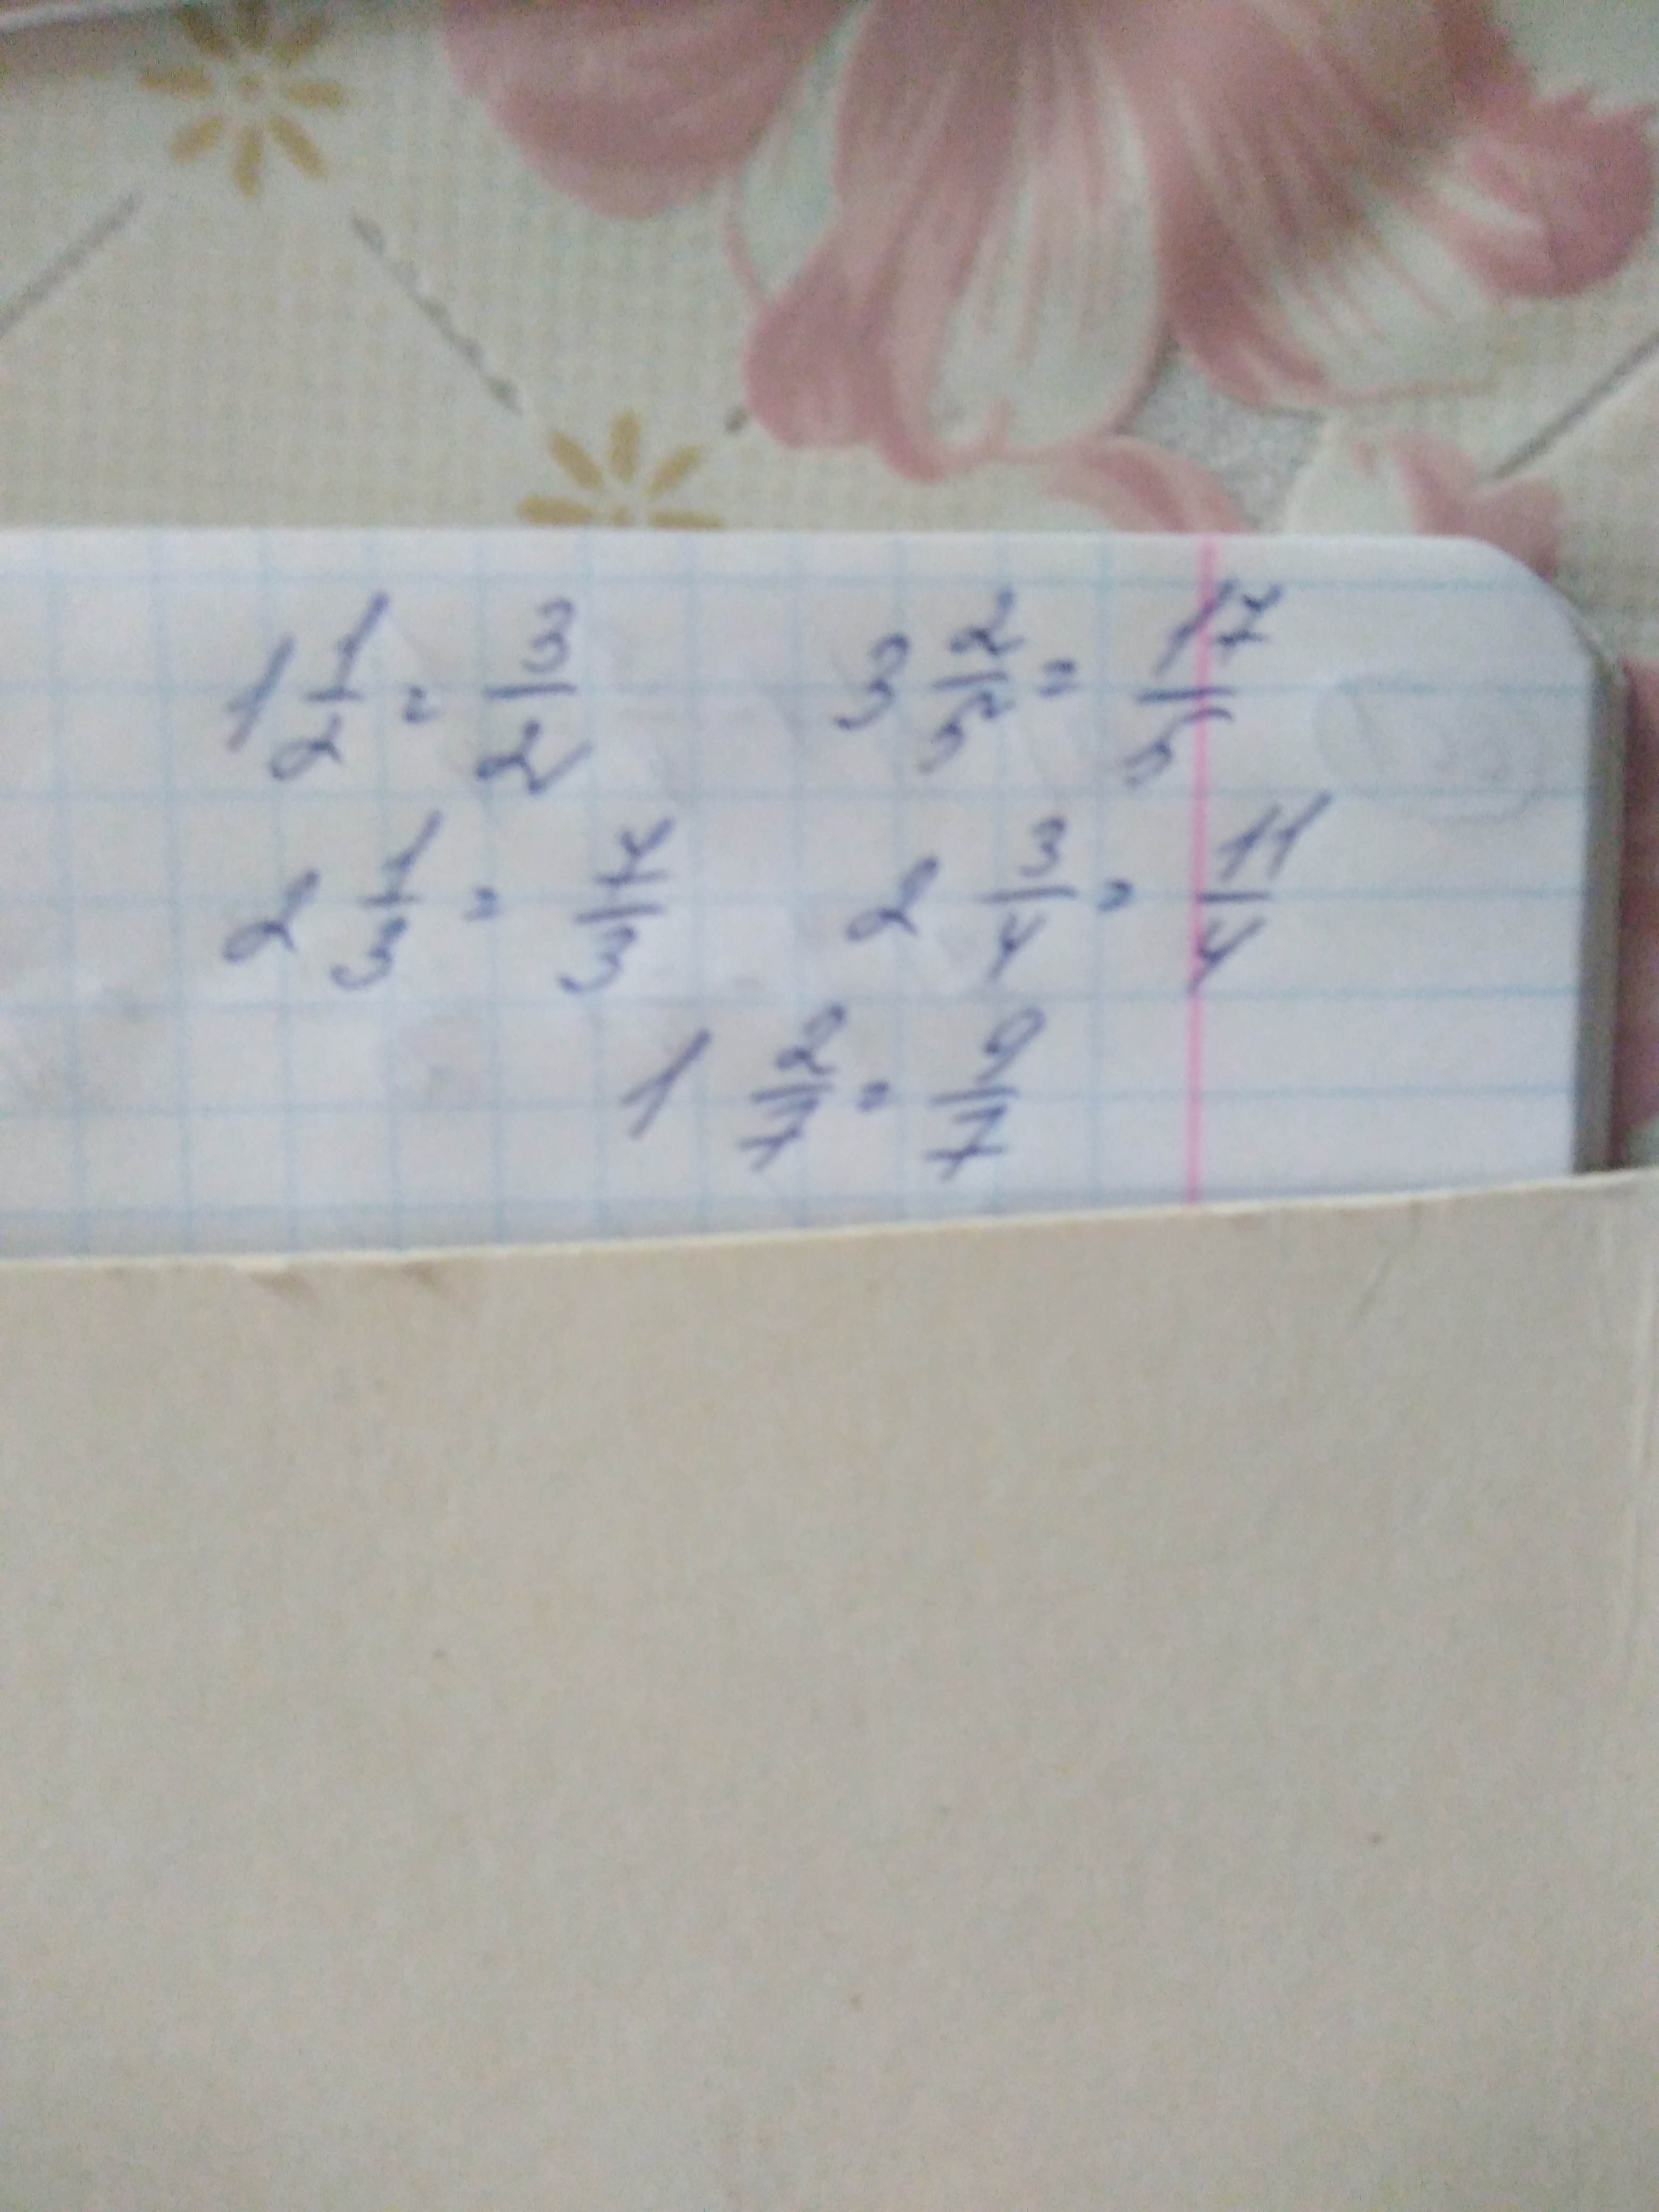 1 1/2 = 3/2 3 2/5 = 17/5
2 1/3 = 7/3 2 3/4 = 11/4
1 2/7 = 9/7